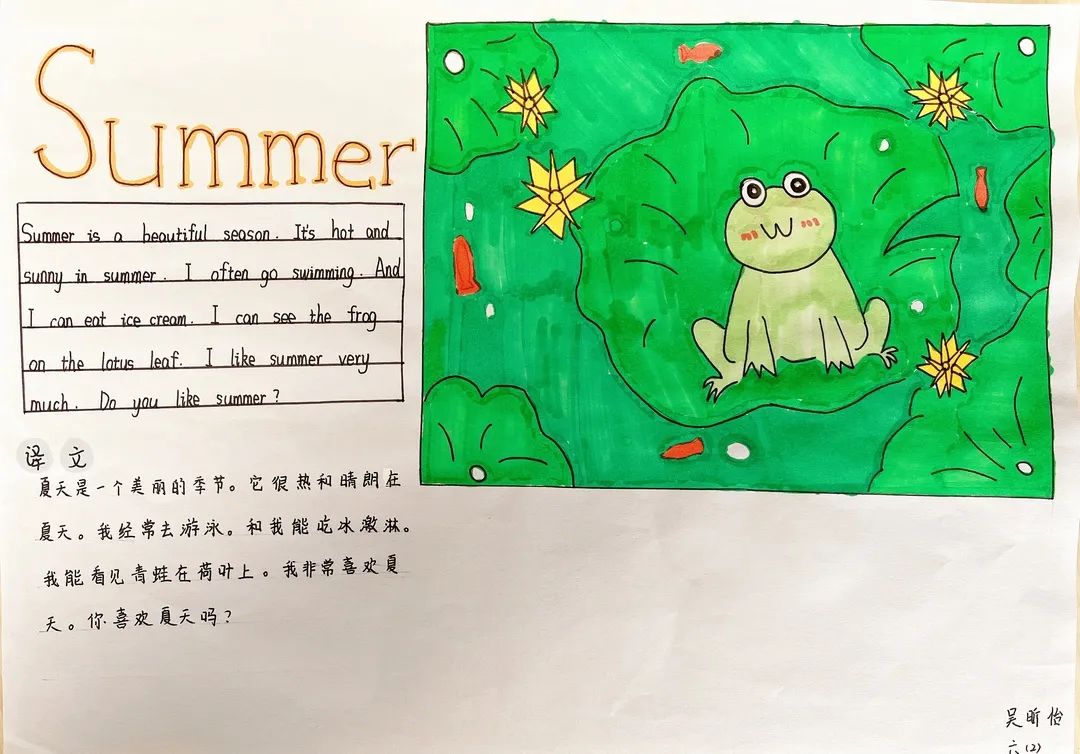 Summer
Summer is a beautiful season. It's hot and
sunny in summer. I often go swimming. And
I can eat ice cream. I can see the frog
on the lotus leaf. I like summer very
much. Do you like summer?
译文
夏天是一个美丽的季节。它很热和晴朗在
夏天。我经常去游泳。和我能吃冰激淋。
我能看见青蛙在荷叶上。我非常喜欢夏
天。你喜欢夏天吗?
吴昕怡
六(2)